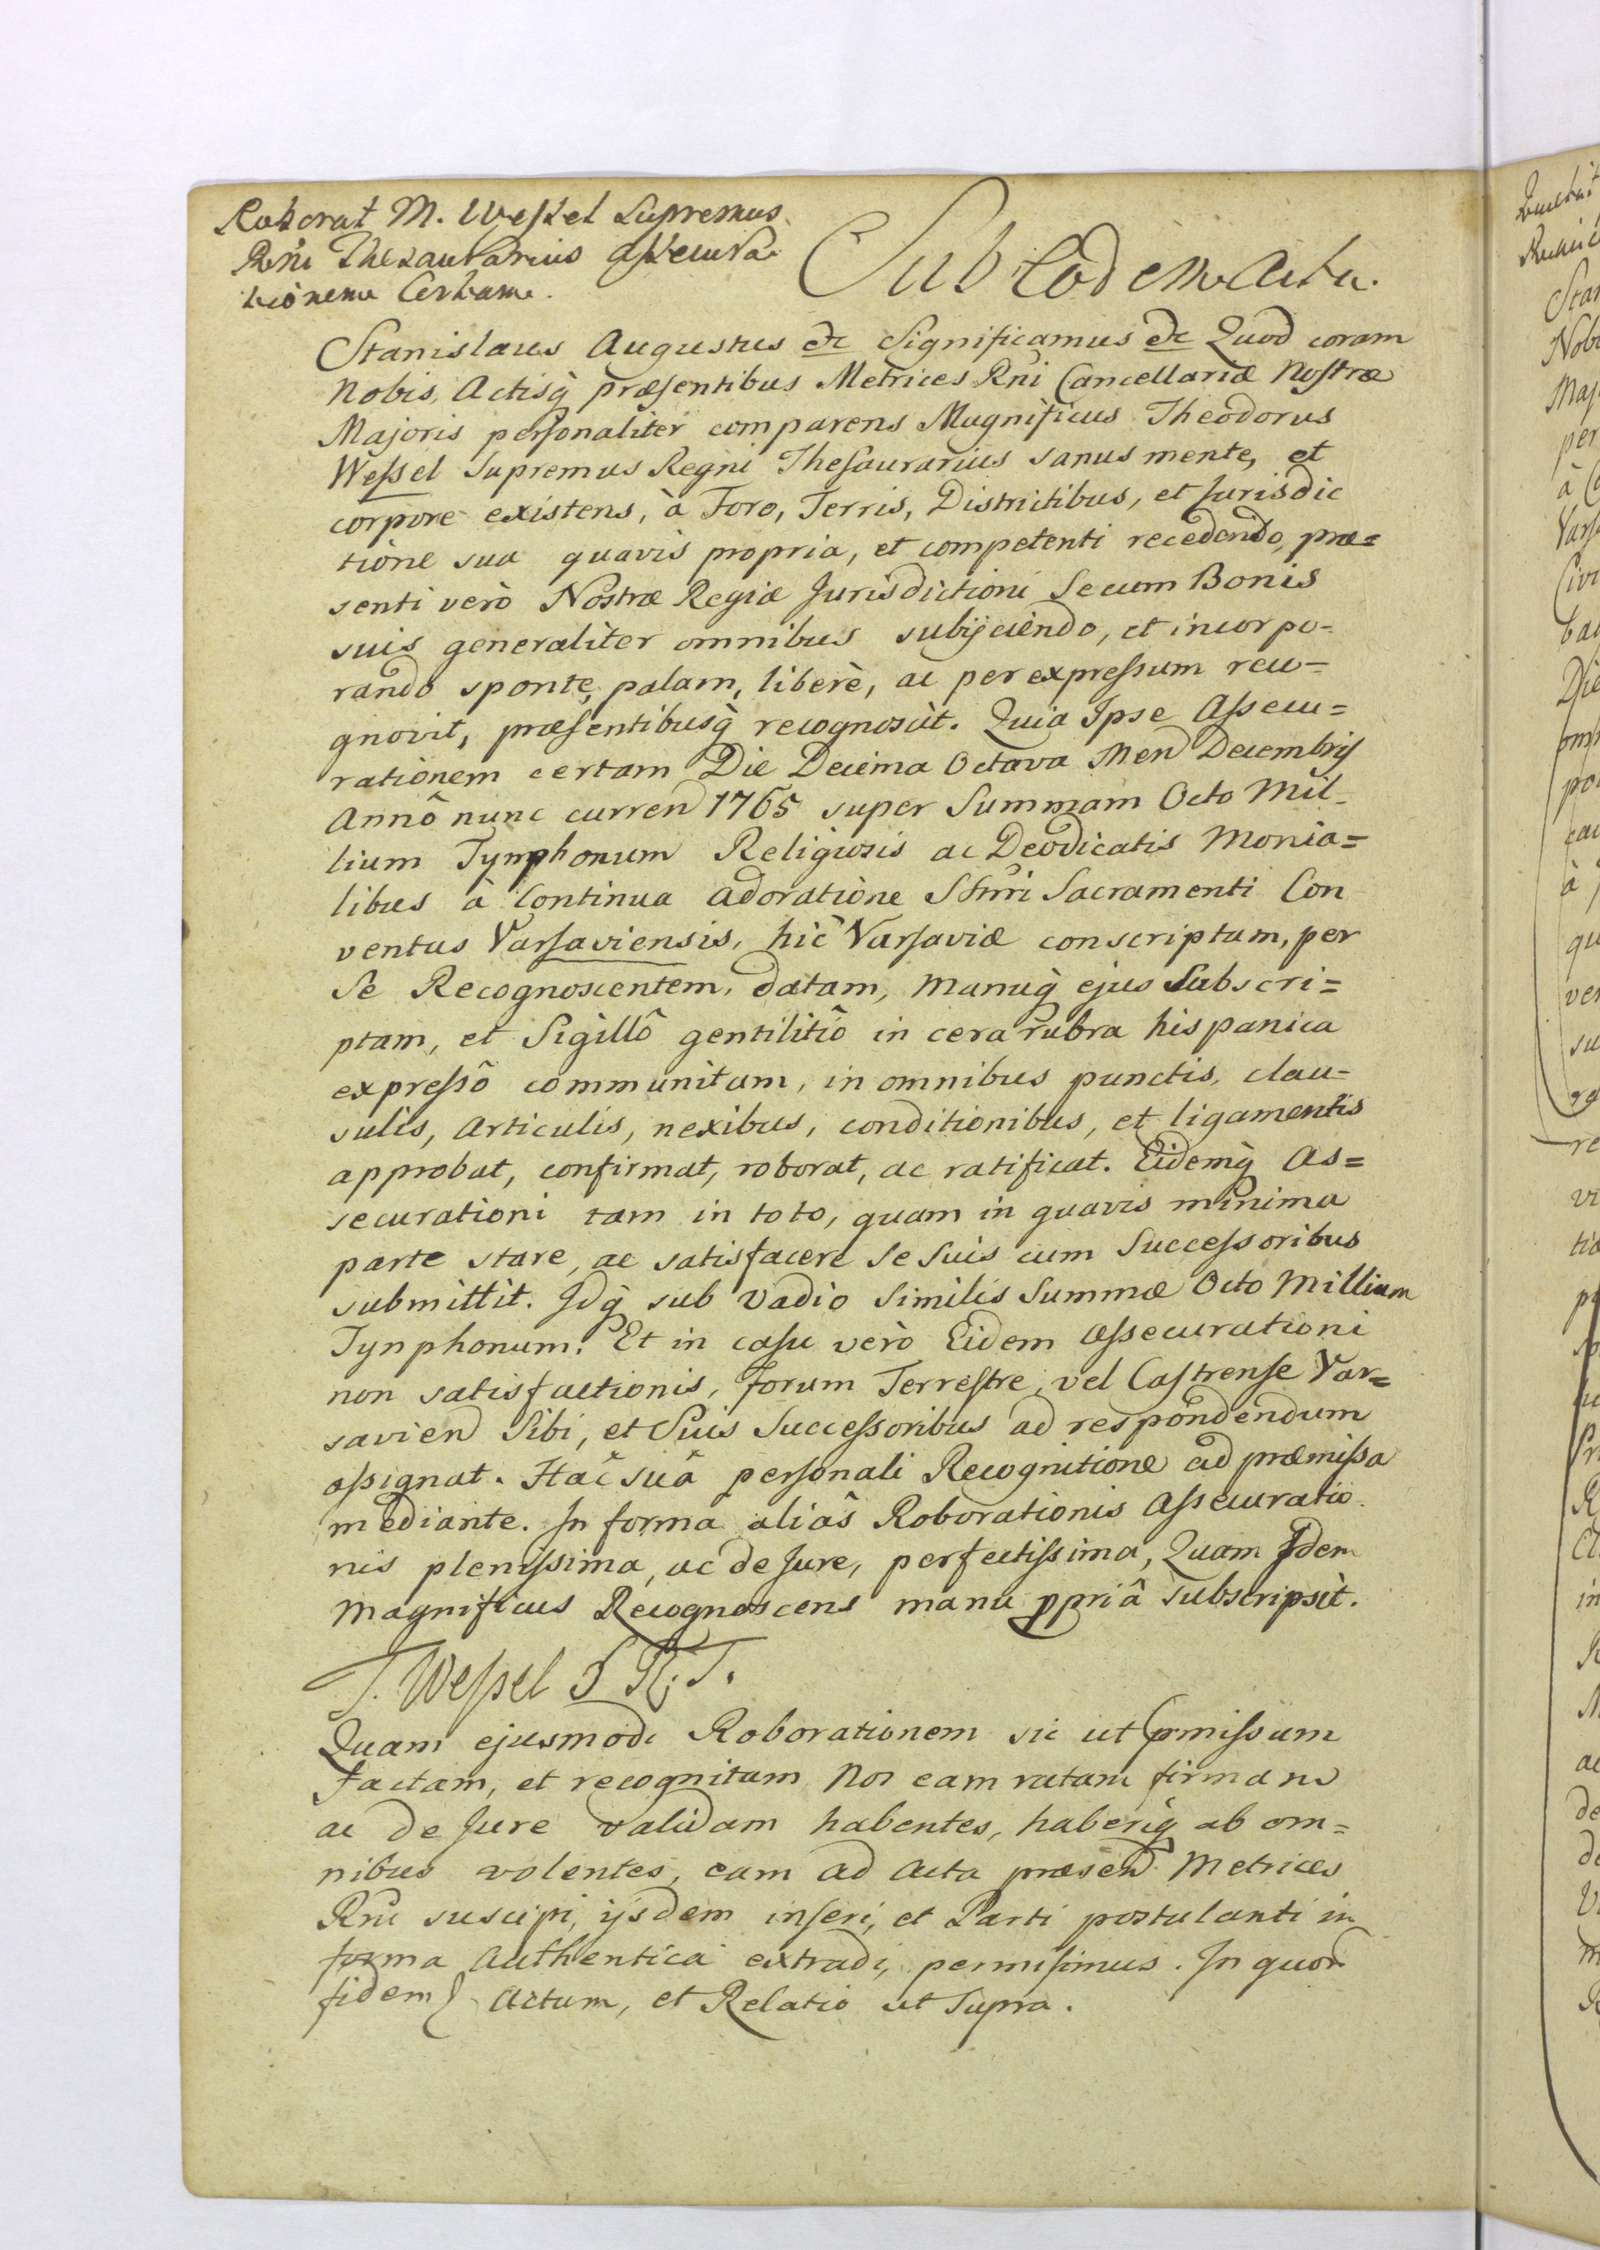 Roborat M. Wessel Supremus
Rñi Thesaurarius Assecura
tionem Certam.
Sub Eodem Actu.
Stanislaus Augustus &c Significamus &c Quod coram
Nobis, Actisq̀ præsentibus Metrices Rñi Cancellariæ Nostræ
Majoris personaliter comparens Magnificus Theodorus
Wessel Supremus Regni Thesaurarius sanus mente, et
corpore existens, à Foro, Terris, Districtibus, et Jurisdic
tione sua quavis propria, et competenti recedendo, præ=
senti verò Nostræ Regiæ Jurisdictioni Se cum Bonis
suis generaliter omnibus subijciendo, et incorpo=
rando sponte, palam, liberè, ac per expressum reco=
gnovit, præsentibusq̀ recognoscit. Quia Ipse Assecu=
rationem certam Die Decima Octava Men Decembris
Annô nunc curren 1765 super Summam Octo Mil=
lium Tynphonum Religiosis ac Deodicatis Monia=
libus à Continua Adoratione SSmi Sacramenti Con
ventus Varsaviensis, hic Varsaviæ conscriptam, per
Se Recognoscentem, datam, Manuq̀ ejus Subscri=
ptam, et Sigillô gentilitiô in cera rubra hispanica
expressô communitam, in omnibus punctis, clau=
sulis, Articulis, nexibus, conditionibus, et ligamentis
approbat, confirmat, roborat, ac ratificat. Eidemq̀ As=
securationi tam in toto, quam in quavis minima
parte stare, ac satisfacere Se Suis cum Successoribus
submittit. Idq̀ sub Vadio Similis Summæ Octo Millium
Tynphonum. Et in casu verò Eidem Assecurationi
non satisfactionis, Forum Terrestre, vel Castrense Var=
savien Sibi, et Suis Successoribus ad respondendum
assignat. Hac suâ personali Recognitione ad præmissa
mediante. In forma aliâs Roborationis Assecuratio
nis plenissima, ac de Jure, perfectissima, Quam Idem
Magnificus Recognoscens manu ppriâ Subscripsit.
T. Wessel S R. T.
Quam ejusmodi Roborationem sic ut pmissum
factam, et recognitam Nos eam ratam firmam
ac de Jure validam habentes, haberiq̀ ab om=
nibus volentes, eam ad Acta præsen Metrices
Rñi suscipi, ijsdem inseri, et Parti postulanti in
forma Authentica extradi, permisimus. In quor
fidem Actum, et Relatio ut Supra.